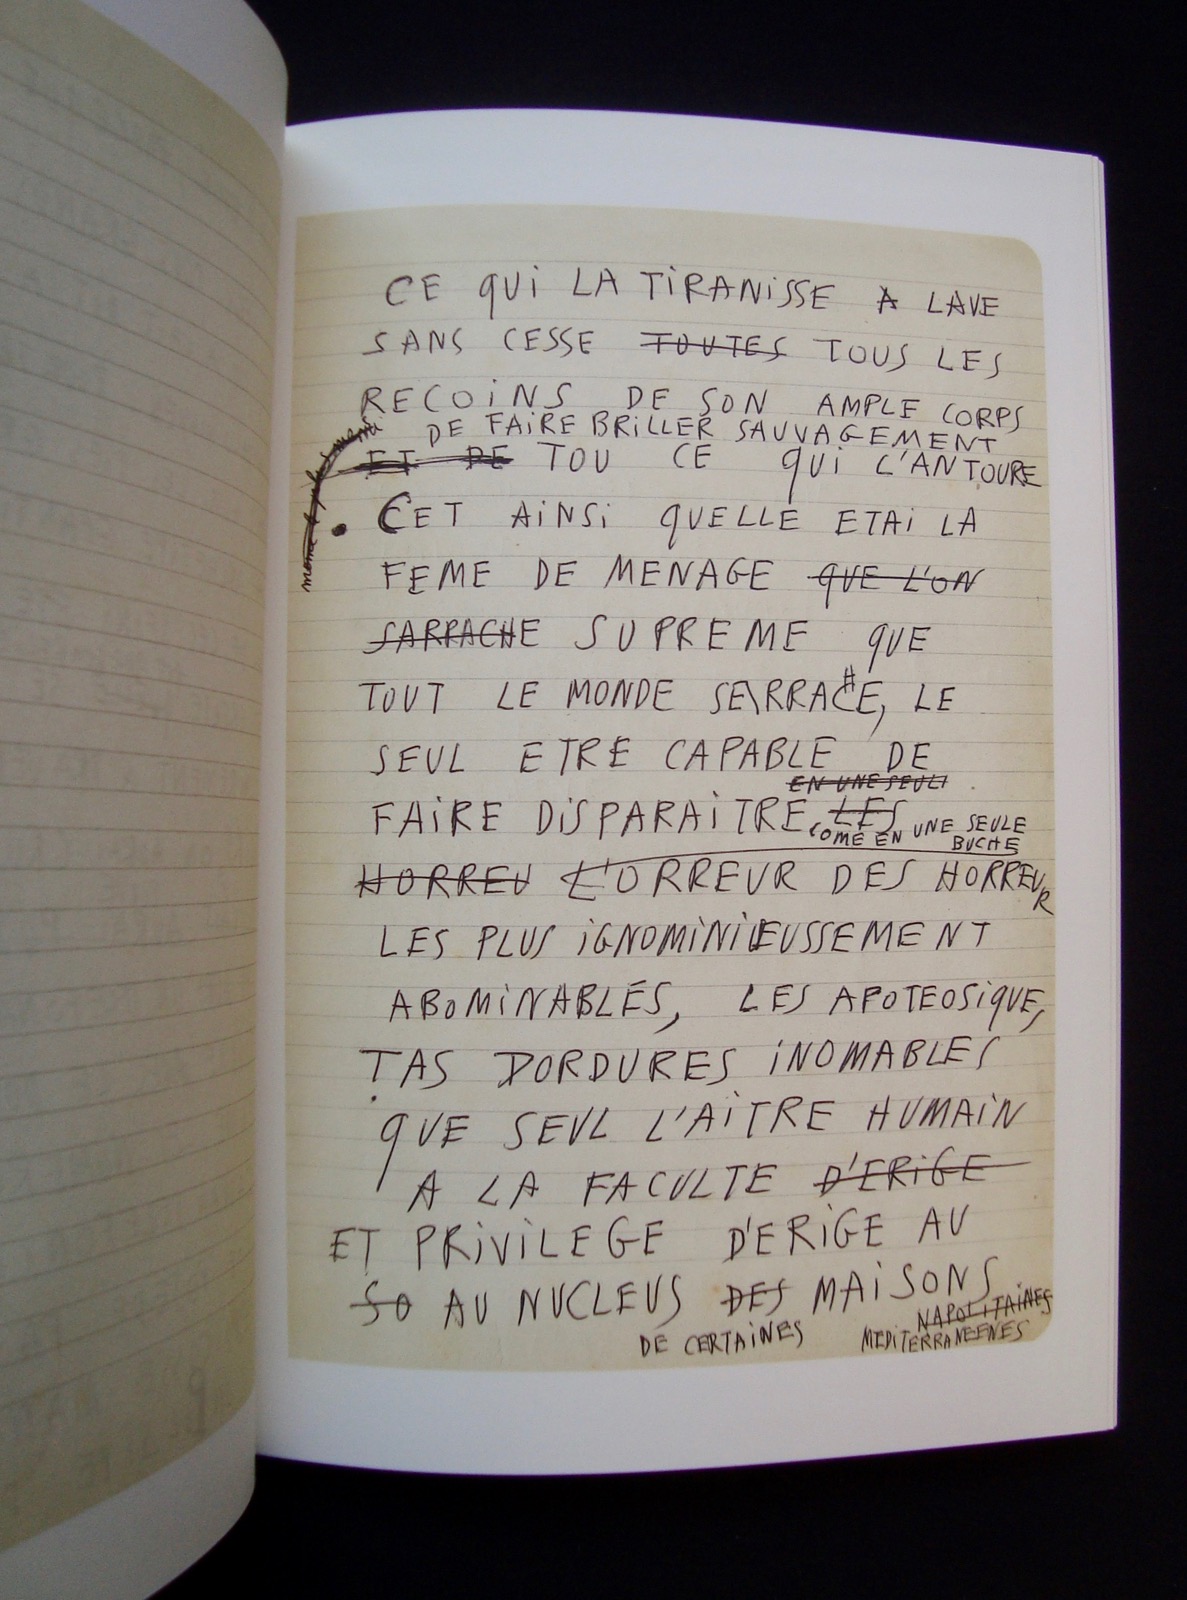 CE QUI LA TIRANISSE A LAVE
SANS CESSE TOUTES TOUS LES
RECOINS DE SON AMPLE CORPS
DE FAIRE BRILLER SAUVAGEMENT
ET DE TOU CE QUI L'ANTOURE
CET AINSI QUELLE ETAI LA
FEME DE MENAGE QUE L'ON
SARRACHE SUPREME QUE
TOUT LE MONDE SERRACHE, LE
SEUL ETRE CAPABLE DE
EN UNE SEULI
FAIRE DISPARAITRE LES
COME EN UNE SEULE
BUCHE
HORREU L'ORREUR DES HORREUR
LES PLUS IGNOMINIEUSSEMENT
ABOMINABLES, LES APOTEOSIQUE,
TAS DORDURES INOMABLES
QUE SEUL L'AITRE HUMAIN
A LA FACULTE D'ERIGE
ET PRIVILEGE D'ERIGE AU
SO AU NUCLEUS DES MAISONS
NAPOLITAINES
DE CERTAINES MEDITERRANEENES